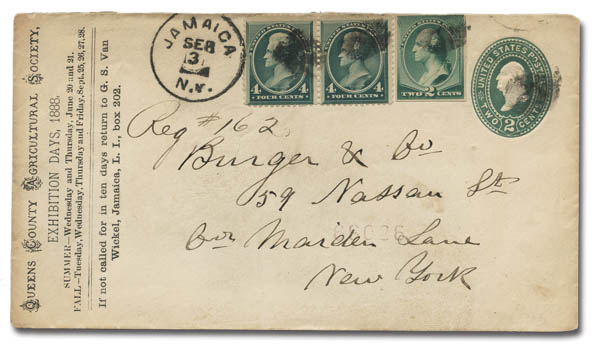 QUEENS COUNTY AGRICULTURAL SOCIETY,
EXHIBITION DAYS, 1888.
SUMMER—Wednesday and Thursday, June 20 and 21.
FALL—Tuesday, Wednesday, Thursday and Friday, Sept. 25, 26, 27, 28.
If not called for in ten days return to G. S. Van
Wickel, Jamaica, L. I., box 202.
JAMAICA
SEP
3
N.Y.
4 4
FOUR CENTS
4 4
FOUR CENTS
2
TWO CENTS
UNITED STATES
TWO 2 CENTS
Reg # 162
Burger & Co
59 Nassau St
Cor Maiden Lane
New York